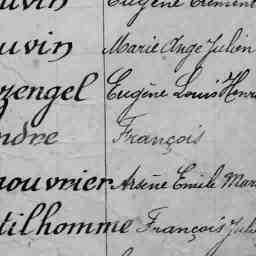 uvin Eugène Clément
uvin Marie Ange Julien
zengel Eugène Louis Henri
ndre François
nouvrier Arsène Emile Mar
tilhomme François Juli